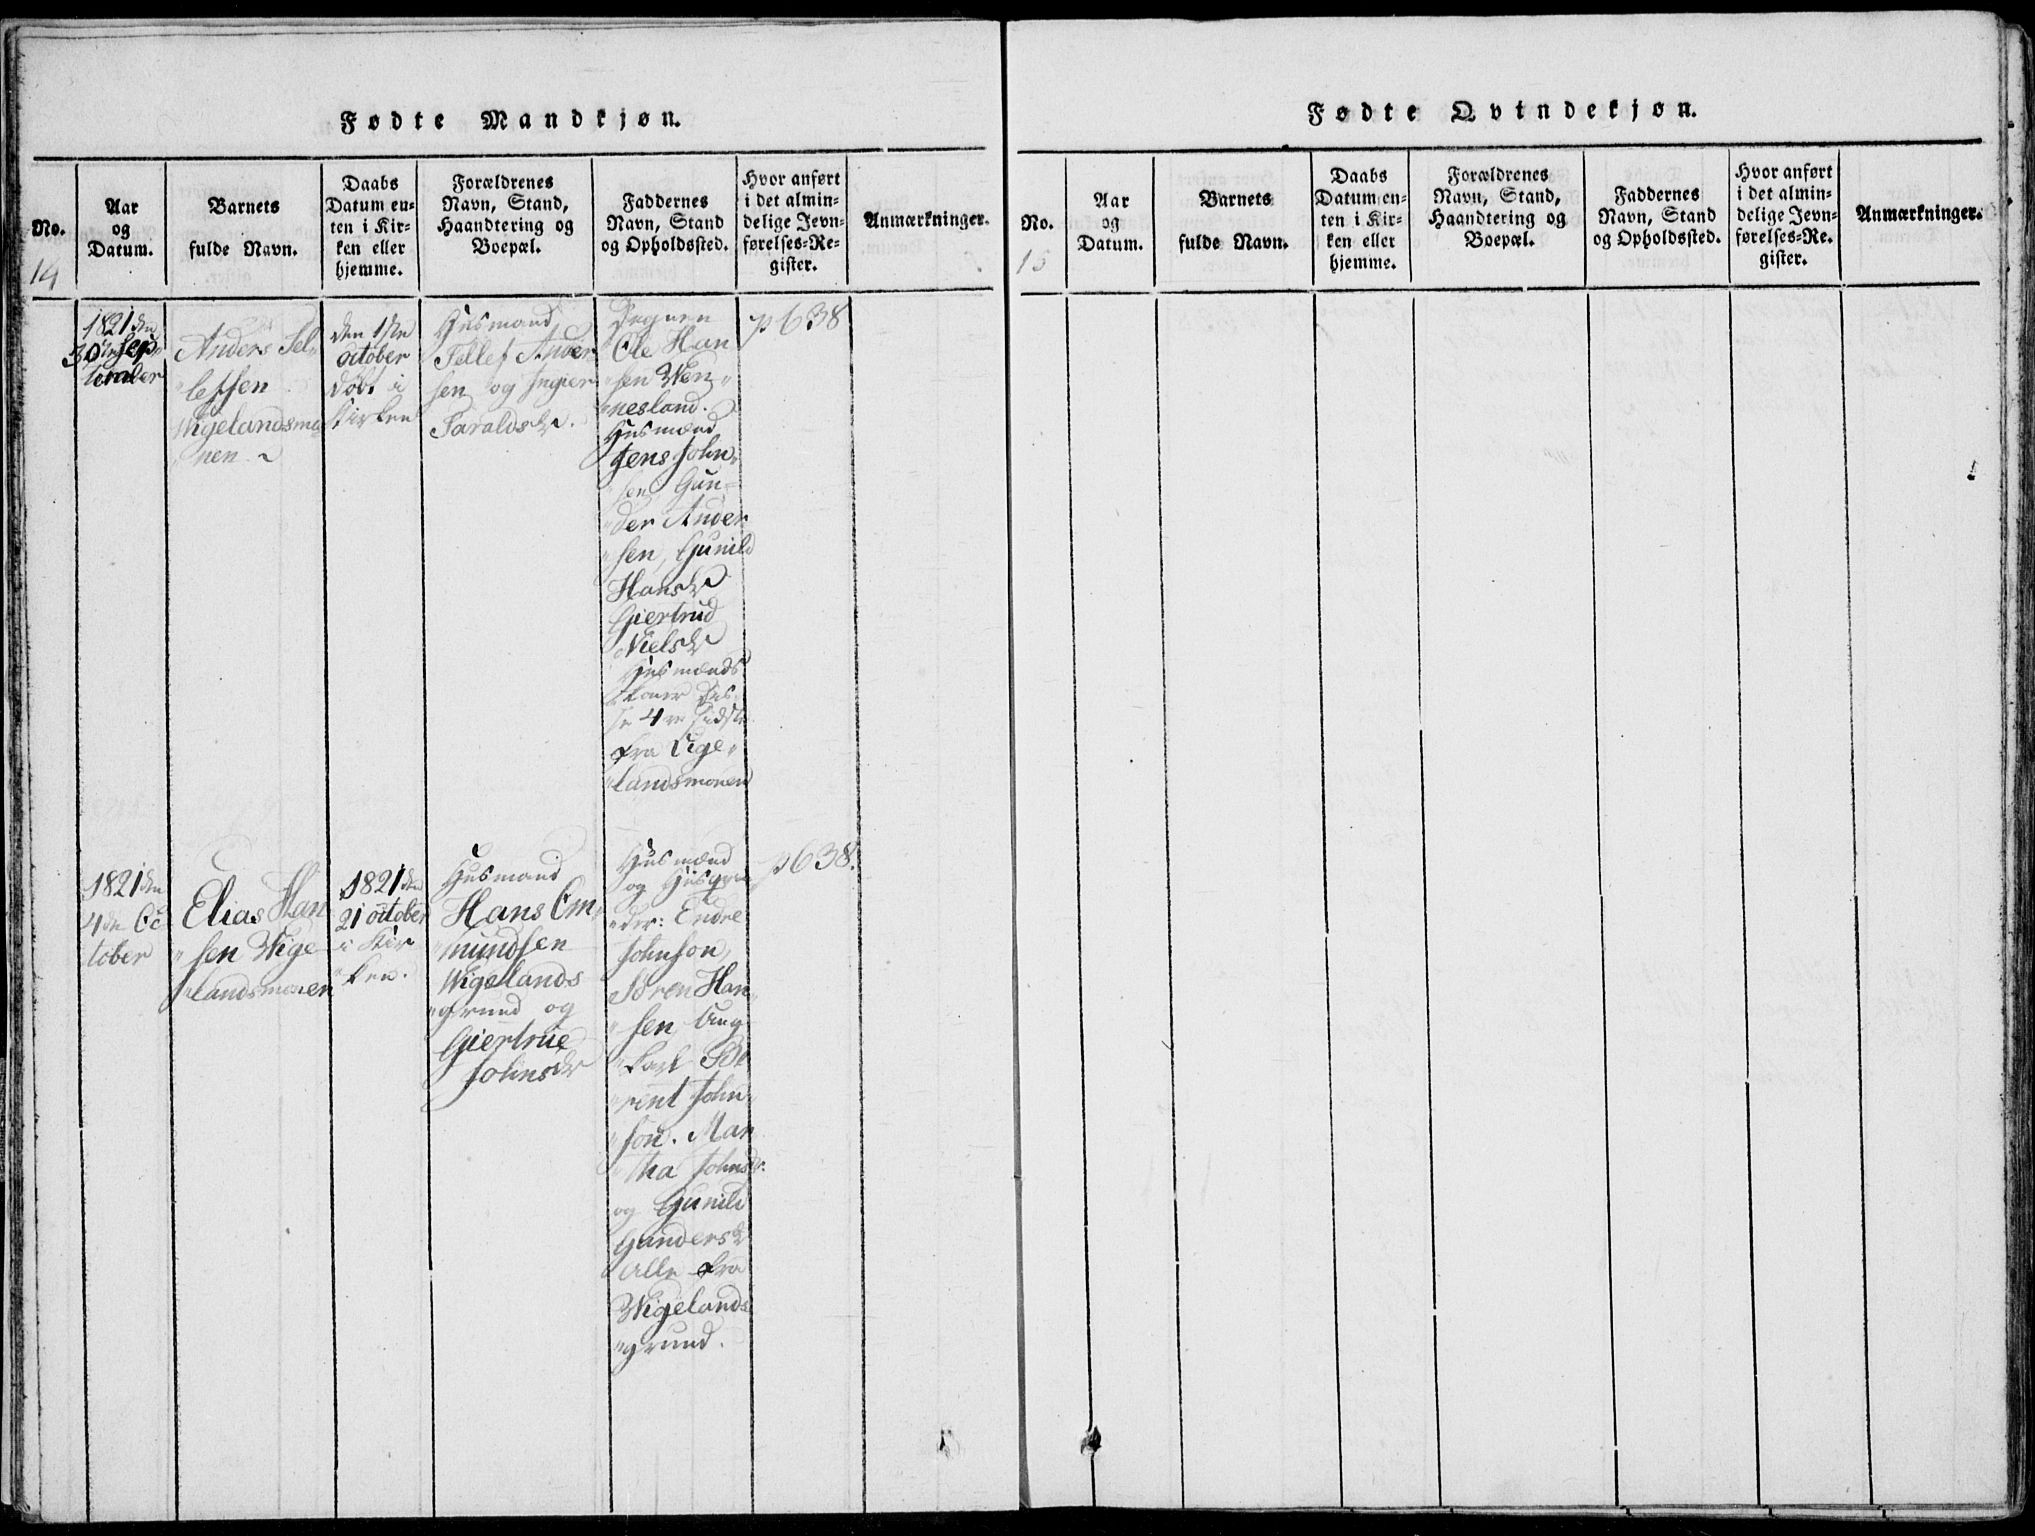 Fødte Mandkjøn.
No.
Aar
og
Datum.
Barnets
fulde Navn.
Daabs
Datum en-
ten i Kir-
ken eller
hjemme.
Forældrenes
Navn, Stand,
Haandtering og
Boepæl.
Faddernes
Navn, Stand
og Opholdssted.
Hvor anført
i det almin-
delige Jevn-
førelses-Re-
gister.
Anmærkninger.
14
1821 den
30te Sep-
tember
Anders Tel-
lefsen
Wigelandsmo-
nen
den 1ste
october
døbt i
Kirken
Husmand
Tellef Ander
sen og Ingier
Taraldsdr.
Degnen
Ole Han
sen Wen-
nesland.
Husmænd
Jens John-
sen, Gun-
der Ander
sen, Gunild
Hansdr
Giertrud
Nielsdr
Husmænds
Koner dis-
se 4re sidste
fra Vige-
landsmonen
p 638
1821 den
4de Oc
tober
Elias Han
sen Wige
landsmonen
1821 den
21 october
i Kir
ken.
Husmand
Hans Om-
mundsen
Wigelands
grund og
Giertrue
Johnsdr
Husmænd
og
der: Endre
Johnson,
Søren Han-
sen, Ung-
karl Be
rent John-
son. Mar
tha Johnsdr.
og Gunild
Gundersdr
alle fra
Wigelands
grund.
p 638.
Fødte Qvindekjøn.
No.
Aar
og
Datum.
Barnets
fulde Navn.
Daabs
Datum en-
ten i Kir-
ken eller
hjemme.
Forældrenes
Navn, Stand,
Haandtering og
Boepæl.
Faddernes
Navn, Stand
og Opholdssted.
Hvor anført
i det almin-
delige Jevn-
førelses-Re-
gister.
Anmærkninger.
15